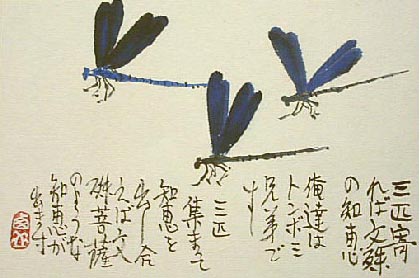 三匹寄
れば文殊
の知恵
俺達は
トンボ三
兄弟で
す
三匹
集まって
知恵を
出し合
えば文
殊菩薩
のような
知恵が
出ます